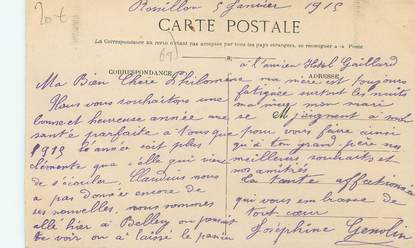 20 t
Rossillon 5 Janvier 1915
CARTE POSTALE
La Correspondance au recto n'étant pas acceptée par tous les pays étrangers, se renseigner à la Poste
(69)
CORRESPONDANCE
Ma Bien Chere Philomène
Nous vous souhaitons une
bonne et heureuse année une
santé parfaite à tous que
1915 l'année soit plus
clémente que celle qui vient
de s'écouler. Claudius nous
a pas donné encore de
ses nouvelles, nous sommes
allé hier à Belley on pouvait
le voir ou à laissé le panier
à l'ancien Hôtel Gaillard
ADRESSE
ma mère est toujours
fatiguée surtout les nuits
ma mère mon mari
se joignent à moi
pour vous faire ainsi
qu'à ton grand père nos
meilleurs souhaits et
nos amitiés
La tante affectionnée
qui vous embrasse de
tout cœur
Joséphine Genolin